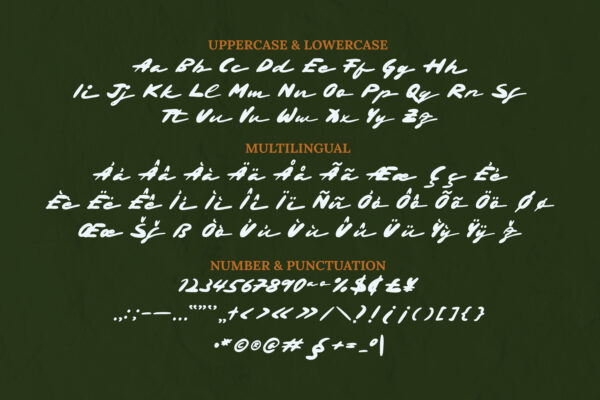 UPPERCASE & LOWERCASE
Aa Bb Cc Dd Ee Ff Gg Hh
Ii Jj Kk Ll Mm Nn Oo Pp Qq Rr Ss
Tt Uu Vv Ww Xx Yy Zz
MULTILINGUAL
Áá Ââ Àà Ää Åå Ãã Ææ Çç Éé
Èè Ëë Êê Íí Ìì Îî Ïï Ññ Óó Ôô Õõ Öö Øø
Œœ Šš ß Òò Úú Ùù Ûû Üü Ỳỳ Ÿÿ ž
NUMBER & PUNCTUATION
1234567890 % $ ¢ £ ¥
.,:;-–—...“”‘’„+<>«»/\?!¿¡()[]{}
·*©®@#§+=_°|